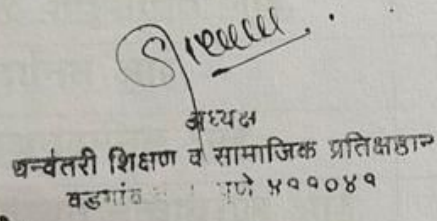 अध्यक्ष
धन्वंतरी शिक्षण व सामाजिक प्रतिष्ठान
वडगांव पुणे ४११०४१